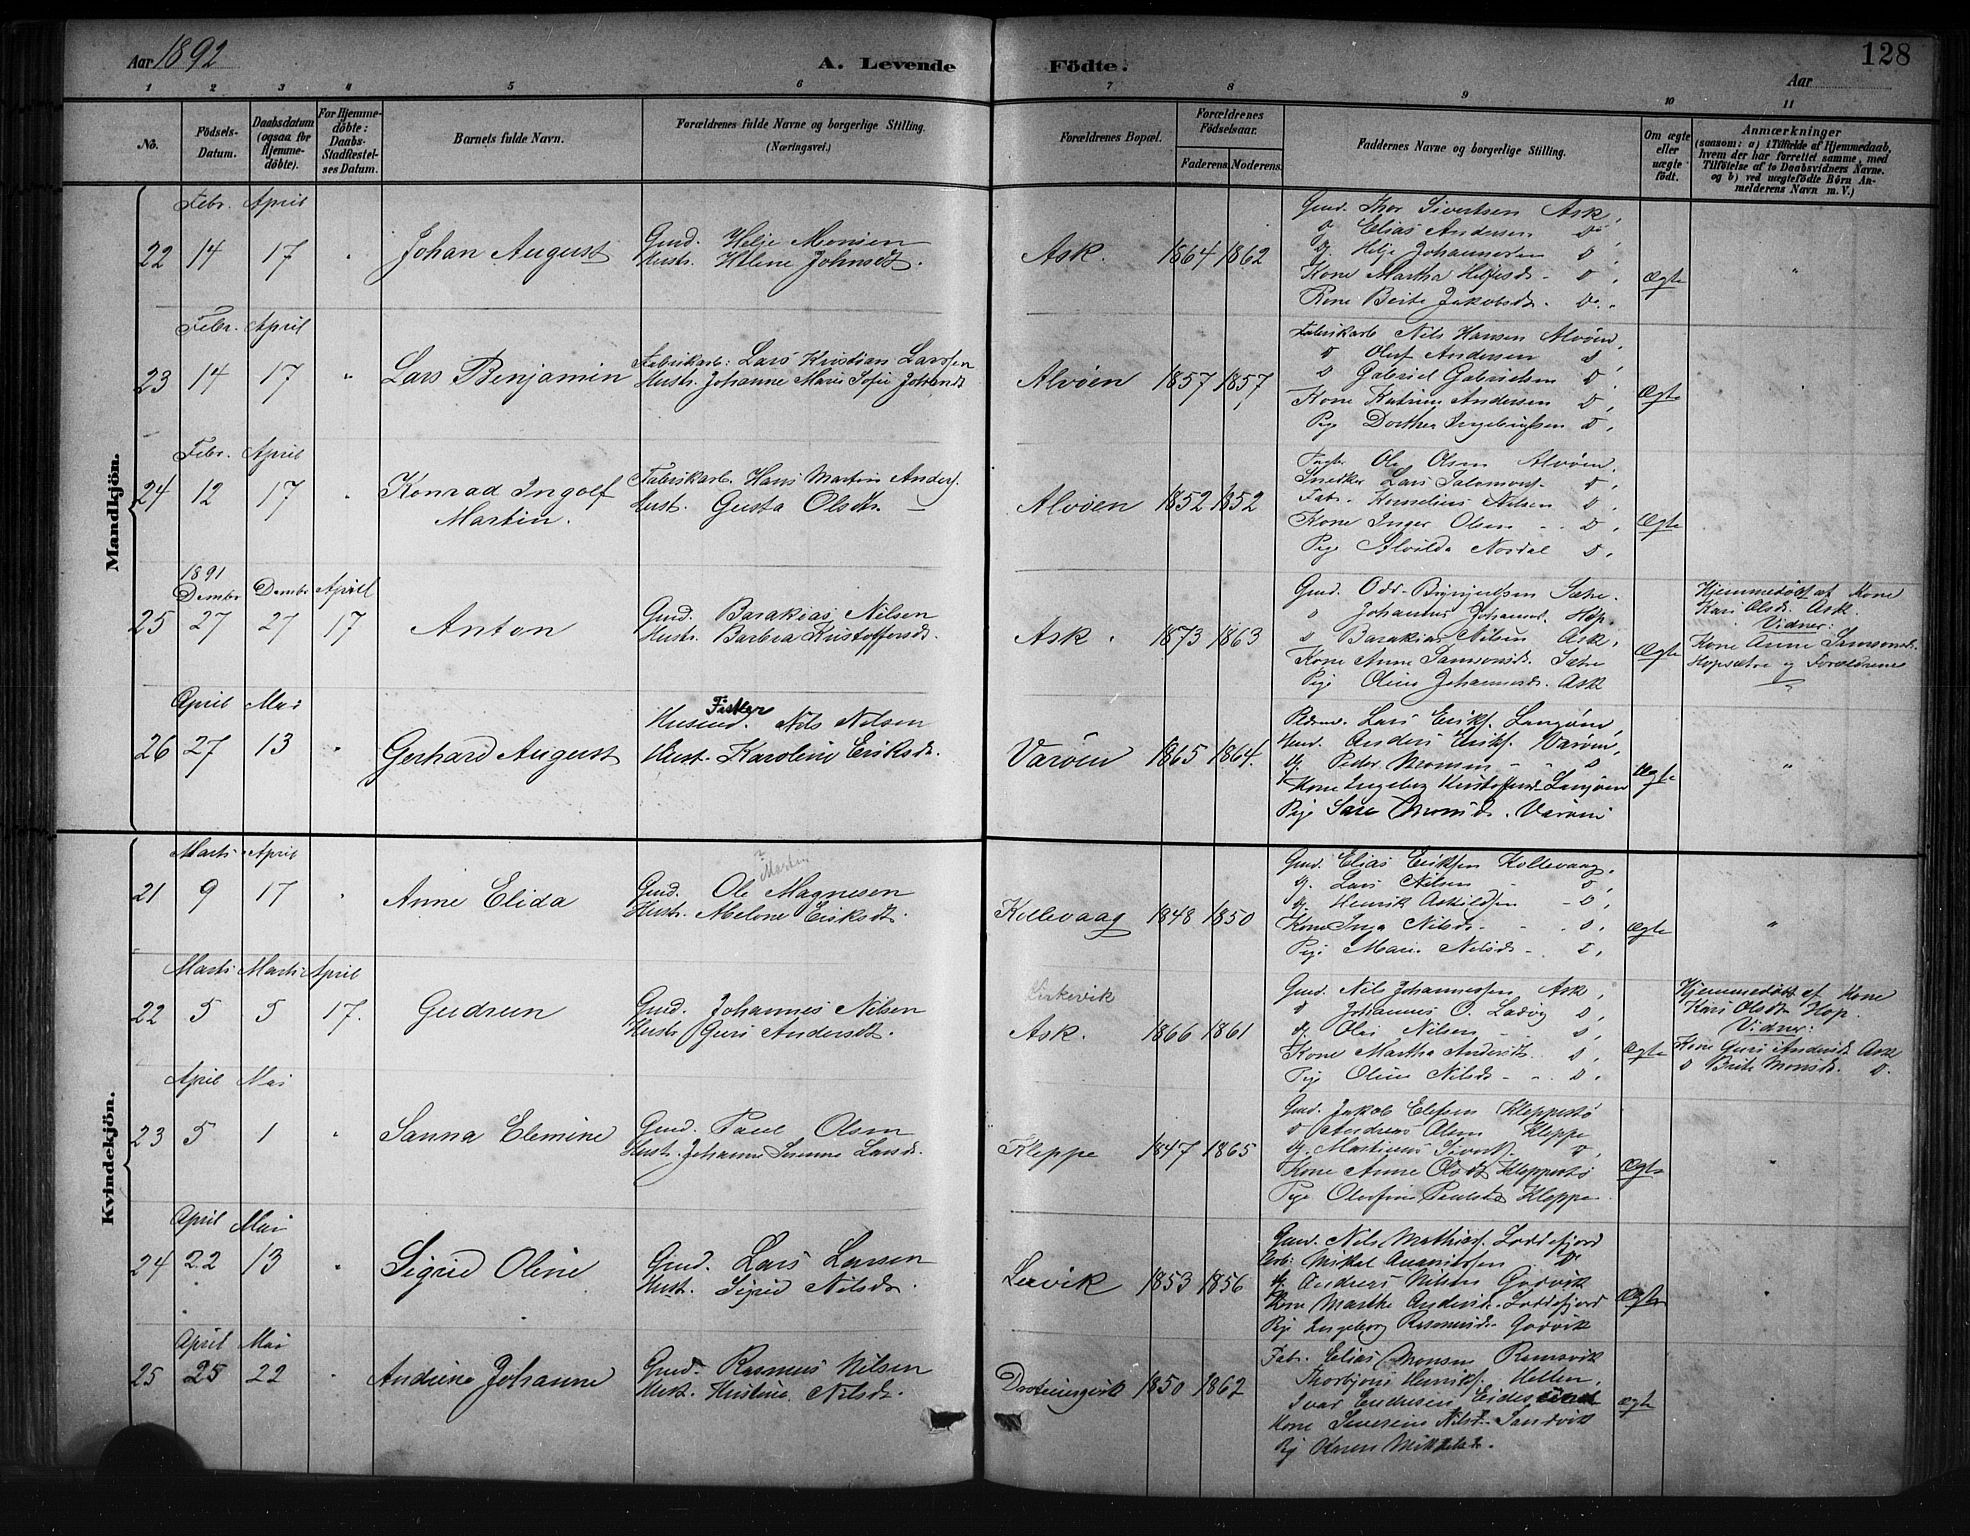 Aar 1892
A. Levende Födte.
128
Aar
1 2 3 4 5 6 7 8 9 10 11
No.
Födsels-Datum.
Daabsdatum (ogsaa for Hjemme-döbte).
For Hjemme-döbte: Daabs-Stadfæstelses Datum.
Barnets fulde Navn.
Forældrenes fulde Navne og borgerlige Stilling.
(Næringsvei.)
Forældrenes Bopæl.
Forældrenes Födselsaar.
Faderens. Moderens.
Faddernes Navne og borgerlige Stilling.
Om ægte eller uægte födt.
Anmærkninger
(saasom: a) i Tilfælde af Hjemmedaab, hvem der har forrettet samme, med Tilföielse af to Daabsvidners Navne, og b) ved uægtefödte Börn Anmelderens Navn m. V.)
Mandkjön.
Febr. April
22 14 17 " Johan August
Gmd. Helje Monsen
Hustr. Helene Johnsdt.
Ask. 1864 1862
Gmd. Thor Sivertsen Ask,
D Elias Andersen D
Helje Johannesen D
Kone Martha Heljesdt. D,
Kone Berte Jakobsdt. D.
Ægte "
Febr. April
23 14 17 " Lars Benjamin
Fabrikarb: Lars Kristian Larssen
Hustr. Johanne Marie Sofie
Alvöen 1857 1857
Fabrikarb Nils Hansen Alvöen,
D Oluf Andersen D
D Gabriel Gabrielsen D
Kone Katrine Andersen D,
Pige Dorthea Ingebrigtsen D,
Ægte "
Febr. April
24 12 17 " Konrad Ingolf
Martin.
Fabrikarb. Hans Martin Anders.
Hust. Gusta Olsdtr.
Alvöen 1852 1852
Ole Olsen Alvöen,
Snedker Lars Salomons. D,
Fab. Kornelius Nilsen D,
Kone Inger Olsen D,
Pige Alvilda Nordal D,
Ægte
1891
Dembr Dembr April
25 27 27 17 Anton
Gmd. Barakias Nilsen
Hustr. Barbra Kristoffersdt.
Ask. 1873 1863
Gmd. Odd Sætre.
D Johannes Johannes. Hop.
D Barakias Nilsen Ask,
Kone Anne Samsonsdt. Sætre
Pige Oline Johannesdt. Ask
Ægte
Hjemmedöbt af Kone
Kari Olsdt. Ask.
Vidner:
Kone Anne Samsonsdt.
Hopsætre og Forældrene
April Mai
26 27 13 " Gerhard August
Fisker
Husmd. Nils Nilsen
Hust. Karoline Eriksdt.
Varöen 1865 1864.
Lars Eriks. Langöen,
Anders Eriks. Varöen,
Peder Monsen D
Kone Ingeborg Kristoffersdt. Langöen
Pige Sara Monsdt. Varöen
Ægte "
Kvindekjön.
Marts April
21 9 17 " Anne Elida
? Martin
Gmd. Ole Magnesen
Hustr. Melene Eriksdt.
Kollevaag 1848 1850
Gmd. Elias Eriksen Kollevaag,
Lars Nilsen D,
Henrik Askildsen D,
Kone Inga Nilsdt. D,
Pige Marie Nilsdt. D,
Ægte "
Marts Marts April
22 5 5 17. Gudrun
Gmd. Johannes Nilsen
Hustr. Guri Andersdt.
Ask. 1866 1861
Gmd. Nils Johannessen Ask,
D Johannes O. Ladvig D,
Ole Nilsen D,
Kone Martha Andersdt. D,
Pige Oline Nilsdt. D,
Ægte
Hjemmedöbt af Kone
Kari Olsdtr Hop.
Vidner:
Kone Guri Andersdt. Ask
D Berte Monsdt. D.
April Mai
23 5 1 " Sanna Elemine
Gmd. Paul Olsen
Hustr. Johanne Larsdt.
Kleppe 1847 1865
Gmd. Jakob Elefsen Kleppestö
D Andreas Olsen Kleppe
Martinus Siverts. D,
Kone Anne Olsdt Kleppestö
Pige Olufine Paulsdt Kleppe
Ægte "
April Mai
24 22 13 " Sigrid Oline
Gmd. Lars Larsen
Hust. Sigrid Nilsdt.
Lervik 1853 1856
Gmd. Nils Mathias. Loddefjord
Arb. Mikal D
Andreas Nilsen Godvik
Kone Marthe Andersdt. Loddefjord
Pige Ingeborg Rasmusdt. Godvik
Ægte "
April Mai
25 25 22 " Andrine Johanne
Gmd. Rasmus Nilsen
Hust. Kristine Nilsdt.
Drotningsvik 1850 1862
Fab. Elias Monsen Ramsvik
Thorbjörn Henriks. Hetlen,
Ivar Endresen
Kone Severine Nilsdt. Sandvik
Pige Karen
Ægte